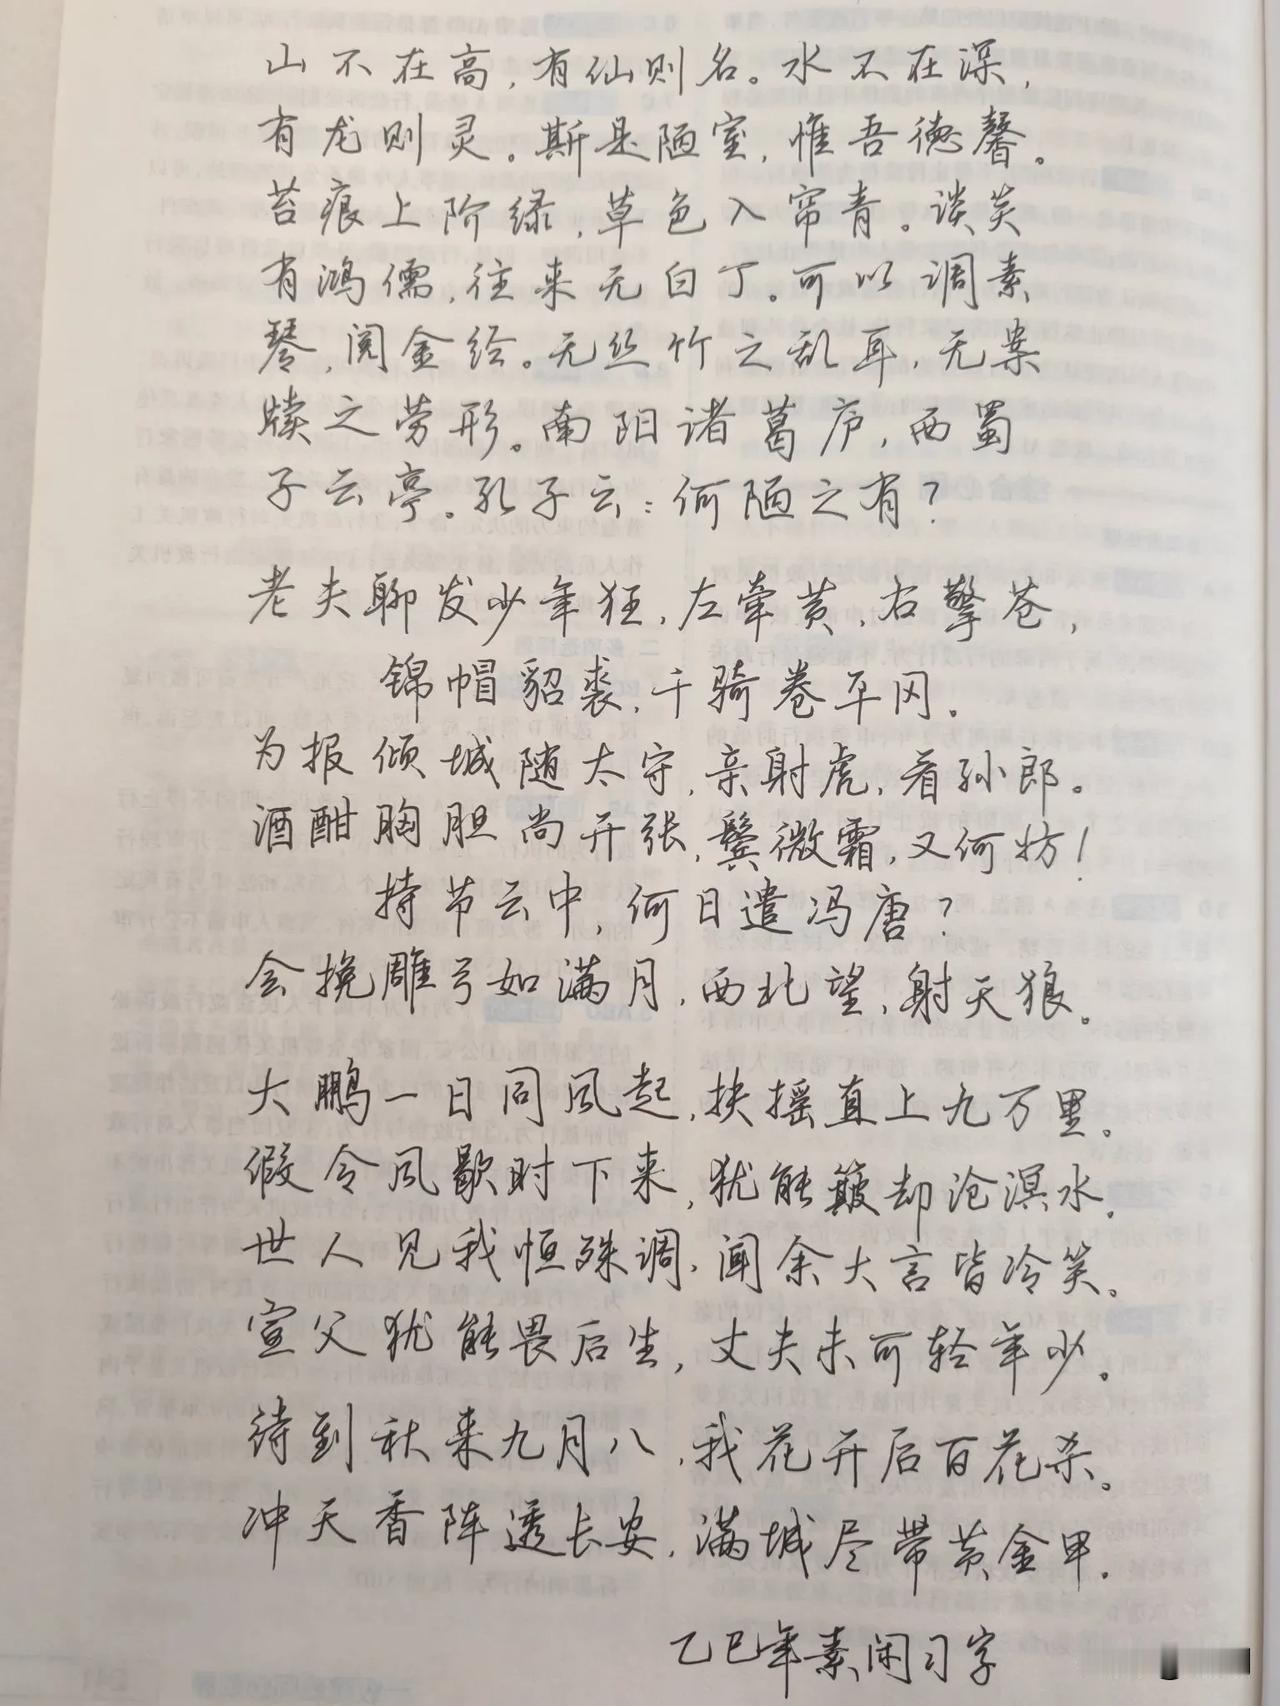 山不在高,有仙则名。水不在深,
有龙则灵。斯是陋室,惟吾德馨。
苔痕上阶绿,草色入帘青。谈笑
有鸿儒,往来无白丁。可以调素
琴,阅金经。无丝竹之乱耳,无案
牍之劳形。南阳诸葛庐,西蜀
子云亭。孔子云:何陋之有?
老夫聊发少年狂,左牵黄,右擎苍,
锦帽貂裘,千骑卷平冈。
为报倾城随太守,亲射虎,看孙郎。
酒酣胸胆尚开张,鬓微霜,又何妨!
持节云中,何日遣冯唐?
会挽雕弓如满月,西北望,射天狼。
大鹏一日同风起,扶摇直上九万里。
假令风歇时下来,犹能簸却沧溟水。
世人见我恒殊调,闻余大言皆冷笑。
宣父犹能畏后生,丈夫未可轻年少。
待到秋来九月八,我花开后百花杀。
冲天香阵透长安,满城尽带黄金甲。
乙巳年素闲习字